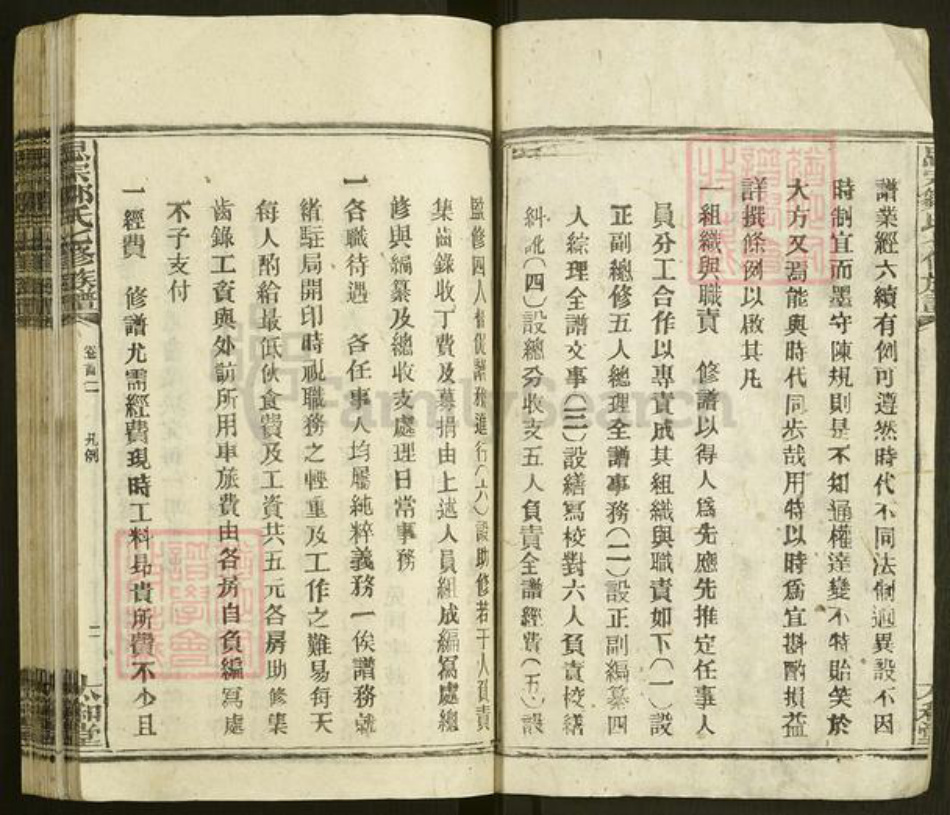 譜業經六續有例可遵然時代不同法制逈異設不因
時制宜而墨守陳規則是不知通權達變不特貽笑於
大方又焉能與時代同步哉用特以時爲宜斟酌損益
詳撰條例以啟其凡
一組織與職責 修譜以得人爲先應先推定任事人
員分工合作以專責成其組織與職責如下(一)設
正副總修五人總理全譜事務(二)設正副編纂四
人綜理全譜文事(三)設繕寫校對六人負責校繕
糾訛(四)設總分收支五人負責全譜經費(五)設
監修四人督促譜務進行(六)設助修若干人負責
集齒錄收丁費及募捐由上述人員組成編寫處總
修與編纂及總收支處理日常事務
一各職待遇 各任事人均屬純粹義務一俟譜務就
緒駐局開印時視職務之輕重及工作之難易每天
每人酌給最低伙食費及工資共五元各房助修集
齒錄工資與外訪所用車旅費由各房自負編寫處
不予支付
一經費 修譜尤需經費現時工料昂貴所費不少且
氏七修族譜
卷首一 凡例
二
堂
FamilySearch